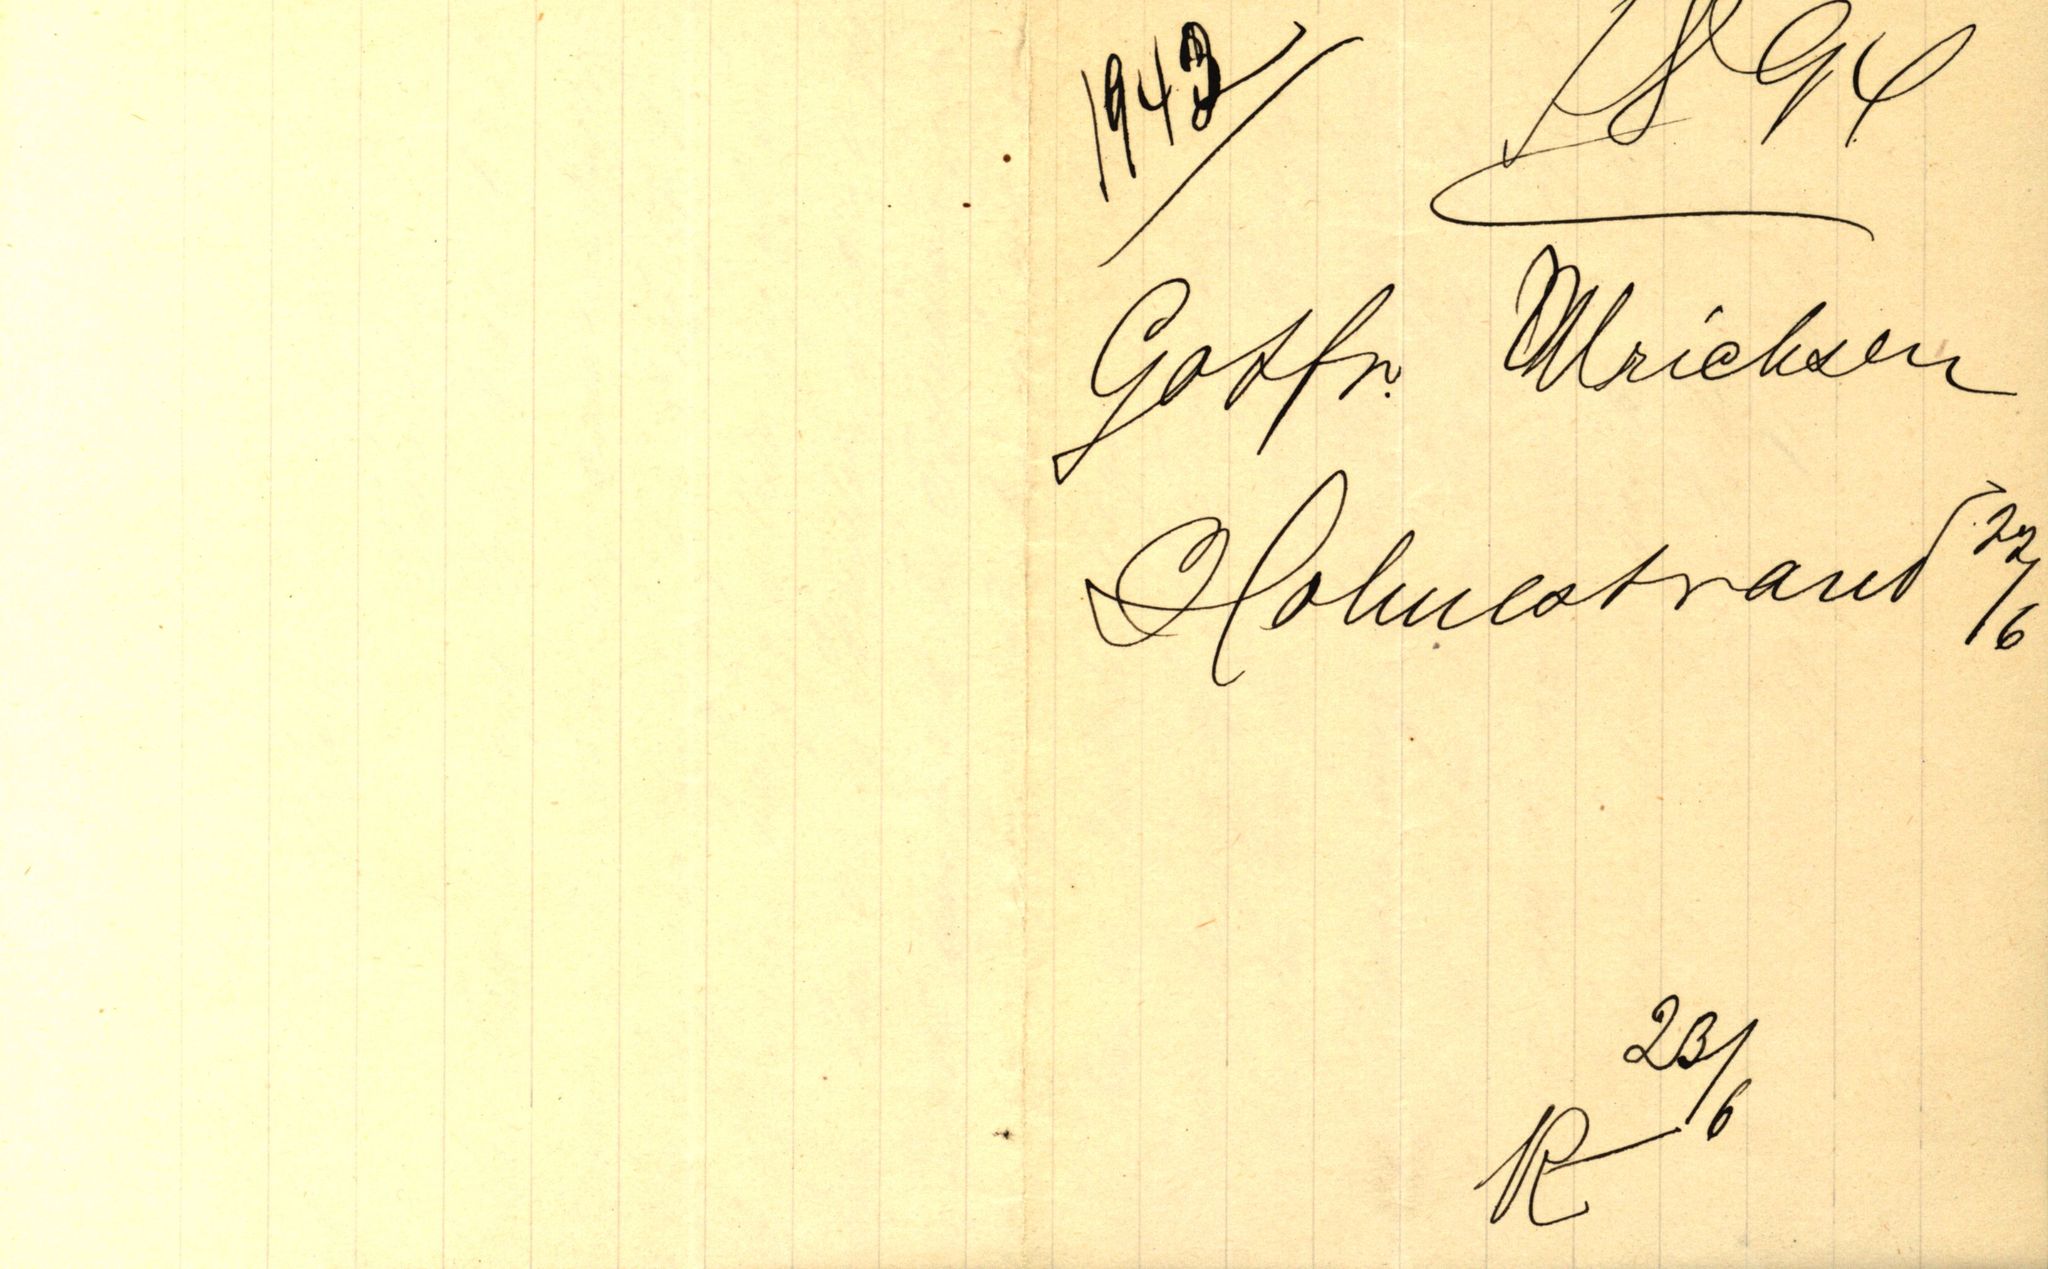 1943
1894
Gotfr. Ulrichsen
Holmestrand 22/6
23/6
R